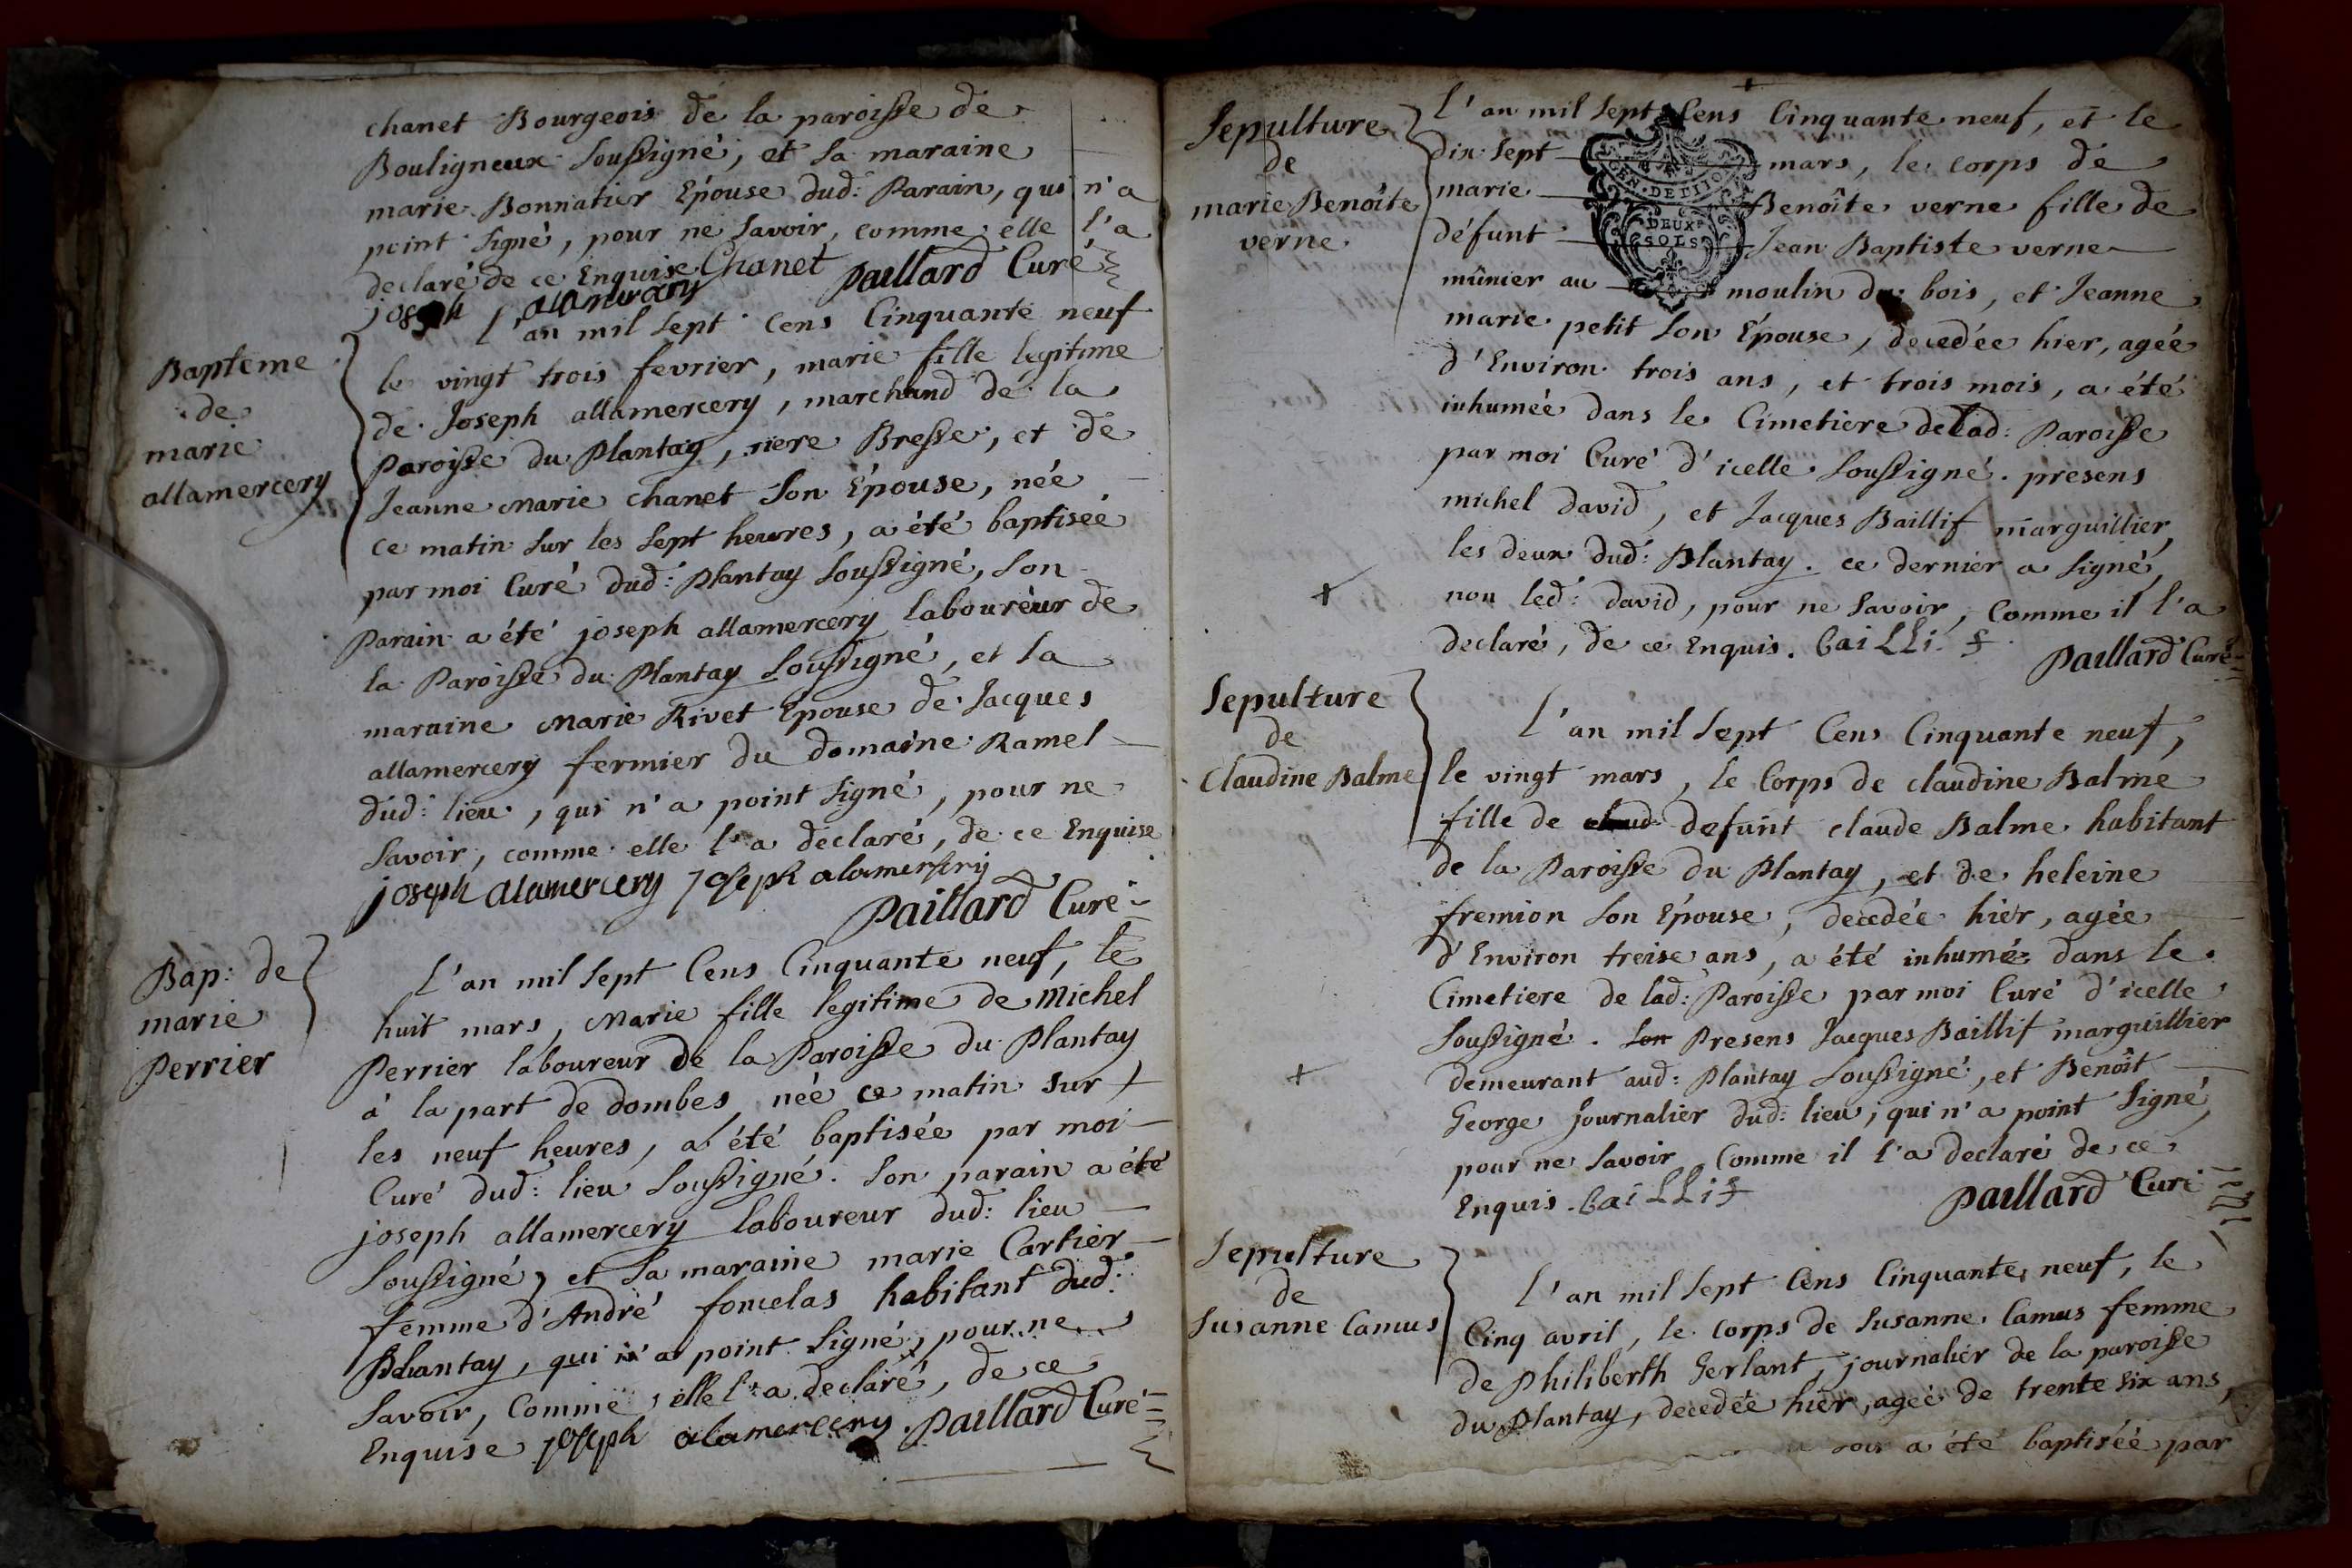 chanet Bourgeois de la paroisse de
Bouligneux soussigné, et sa maraine
marie Bonnatier Epouse dud: Parain, qui n'a
point signé, pour ne savoir, comme elle l'a
declaré de ce Enquise Chanet paillard Curé
joseph alamercery
l'an mil sept cens Cinquante neuf
Bapteme
de
marie
allamercery
le vingt trois fevrier, marie fille legitime
de Joseph allamercery, marchand de la
Paroisse du Plantay, riere Bresse, et de
Jeanne Marie chanet son Épouse, née
ce matin sur les sept heures, a été baptisée
par moi Curé dud: Plantay soussigné, son
Parain a été joseph allamercery laboureur de
la Paroisse du Plantay soussigné, et la
maraine Marie Rivet Epouse de Jacques
allamercery fermier du domaine Ramel
dud: lieu, qui n'a point signé, pour ne
savoir, comme elle l'a declaré, de ce Enquise
joseph alamercery joseph alamersery
paillard Curé
Bap: de
marie
Perrier
L'an mil sept Cens Cinquante neuf, le
huit mars, Marie fille legitime de Michel
Perrier laboureur de la Paroisse du Plantay
à la part de dombes, née ce matin sur
les neuf heures, a été baptisée par moi
Curé dud: lieu soussigné. son parain a été
joseph allamercery laboureur dud: lieu
soussigné, et sa maraine marie Cartier
femme d'André foncelas habitant dud:
Plantay, qui n'a point signé, pour ne
savoir, Comme elle l'a declaré, de ce
Enquise joseph alamercery. paillard Curé
Sepulture
de
marie Benoîte
verne
L'an mil sept Cens Cinquante neuf, et le
dix sept mars, le corps de
marie Benoîte verne fille de
défunt Jean Baptiste verne
mûnier au moulin du bois, et Jeanne
GEN. DE
DEUX
SOLS
marie petit son Épouse, decedée hier, agée
d'Environ trois ans, et trois mois, a été
inhumée dans le Cimetiere de lad: Paroisse
par moi Curé d'icelle soussigné. presens
michel david, et Jacques Baillif marguillier,
les deux dud: Plantay. ce dernier a signé,
non led: david, pour ne savoir, Comme il l'a
declaré, de ce Enquis. baiLLif
paillard Curé
Sepulture
de
Claudine Balme
L'an mil sept Cens Cinquante neuf,
le vingt mars, le Corps de claudine Balme
fille de claud: defunt claude Balme habitant
de la Paroisse du Plantay, et de heleine
fremion son Épouse, decedée hier, agée
d'Environ treise ans, a été inhumée dans le
Cimetiere de lad: Paroisse par moi Curé d'icelle
soussigné. son Presens Jacques Baillif marguillier
demeurant aud: Plantay soussigné, et Benoît
George journalier dud: lieu, qui n'a point signé,
pour ne savoir, Comme il l'a declaré de ce
Enquis. baiLLif paillard Curé
Sepulture
de
Susanne Camus
L'an mil sept Cens Cinquante neuf, le
Cinq avril, le corps de Susanne Camus femme
de Philiberth Gerlant, journalier de la paroisse
du Plantay, decedée hier, agée de trente six ans,
a été baptisée par